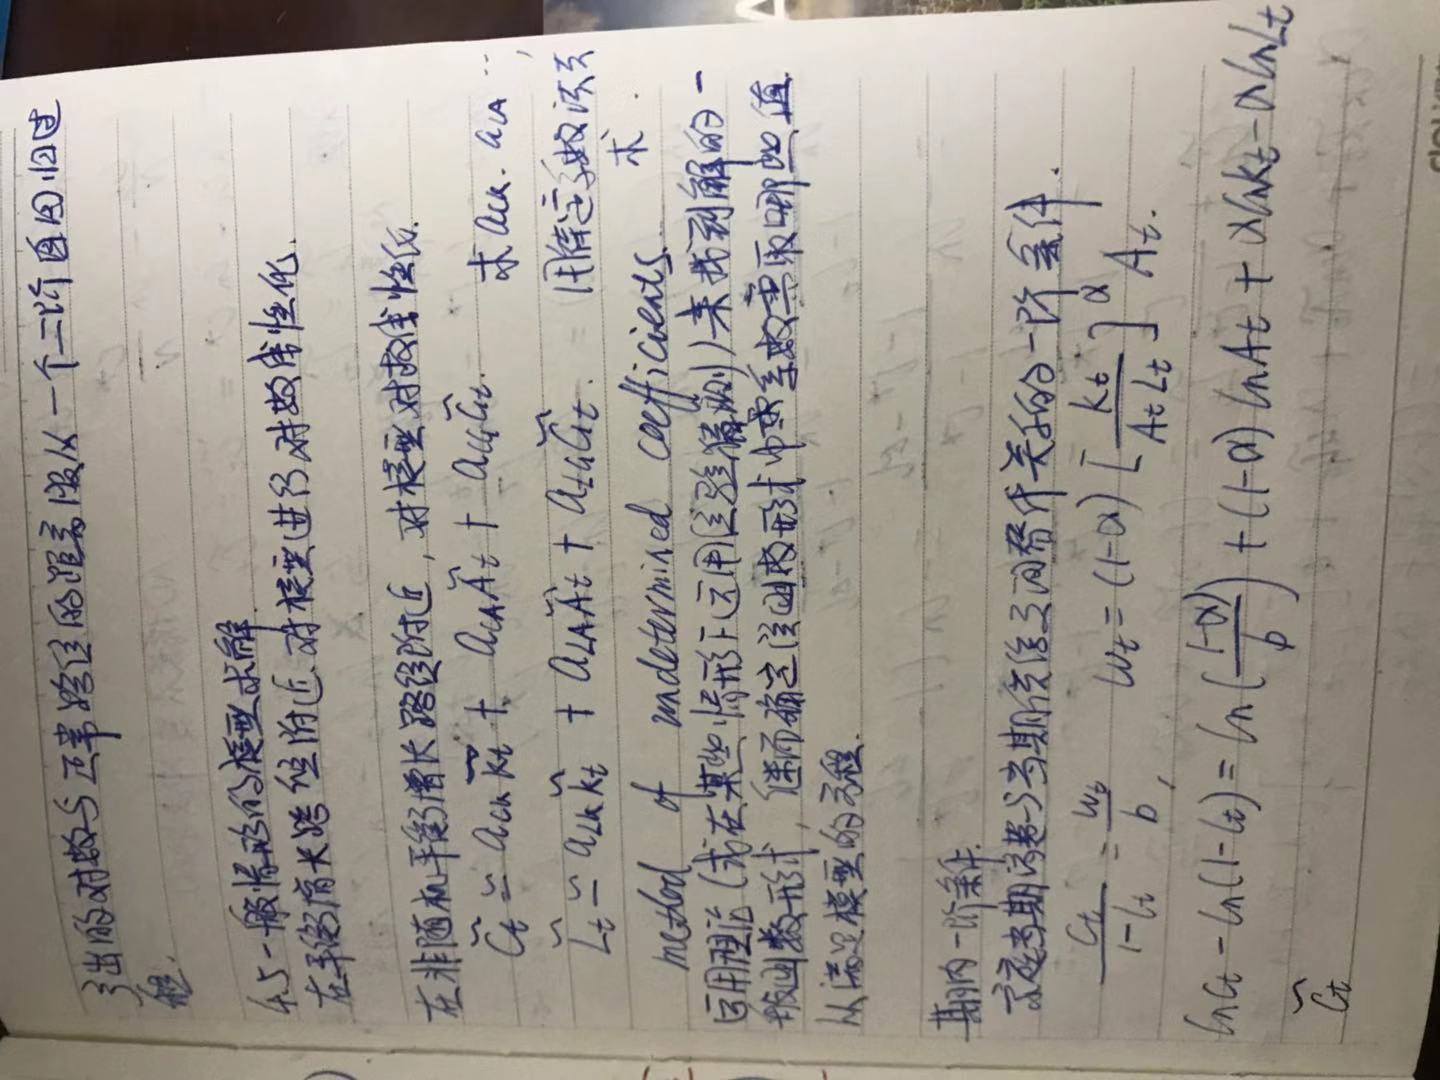 出的对数与正常路径的距离服从一个二阶自回归过
程.
4.5 一般情形的模型求解
在平衡增长路径附近对模型进行对数线性化.
在非随机平衡增长路径附近，对模型对数线性化.
C̃t ≃ aCK K̃t + aCA Ãt + aCG G̃t. 求 aCK. aCA ...
L̃t ≃ aLK K̃t + aLA Ãt + aLG G̃t. = 用待定系数法求
求.
method of undetermined coefficients
运用理论(或在某些情形下运用经验猜测)来找到解的一
般函数形式，进而确定该函数形式中系数需取哪些值
从满足模型的方程.
期内一阶条件.
家庭当期消费与当期劳动之间替代关系的一阶条件.
Ct/(1-Lt) = wt/b , wt = (1-α) [Kt/(AtLt)]^α At.
lnCt - ln(1-Lt) = ln((1-α)/b) + (1-α) lnAt + αlnKt - αlnLt
C̃t